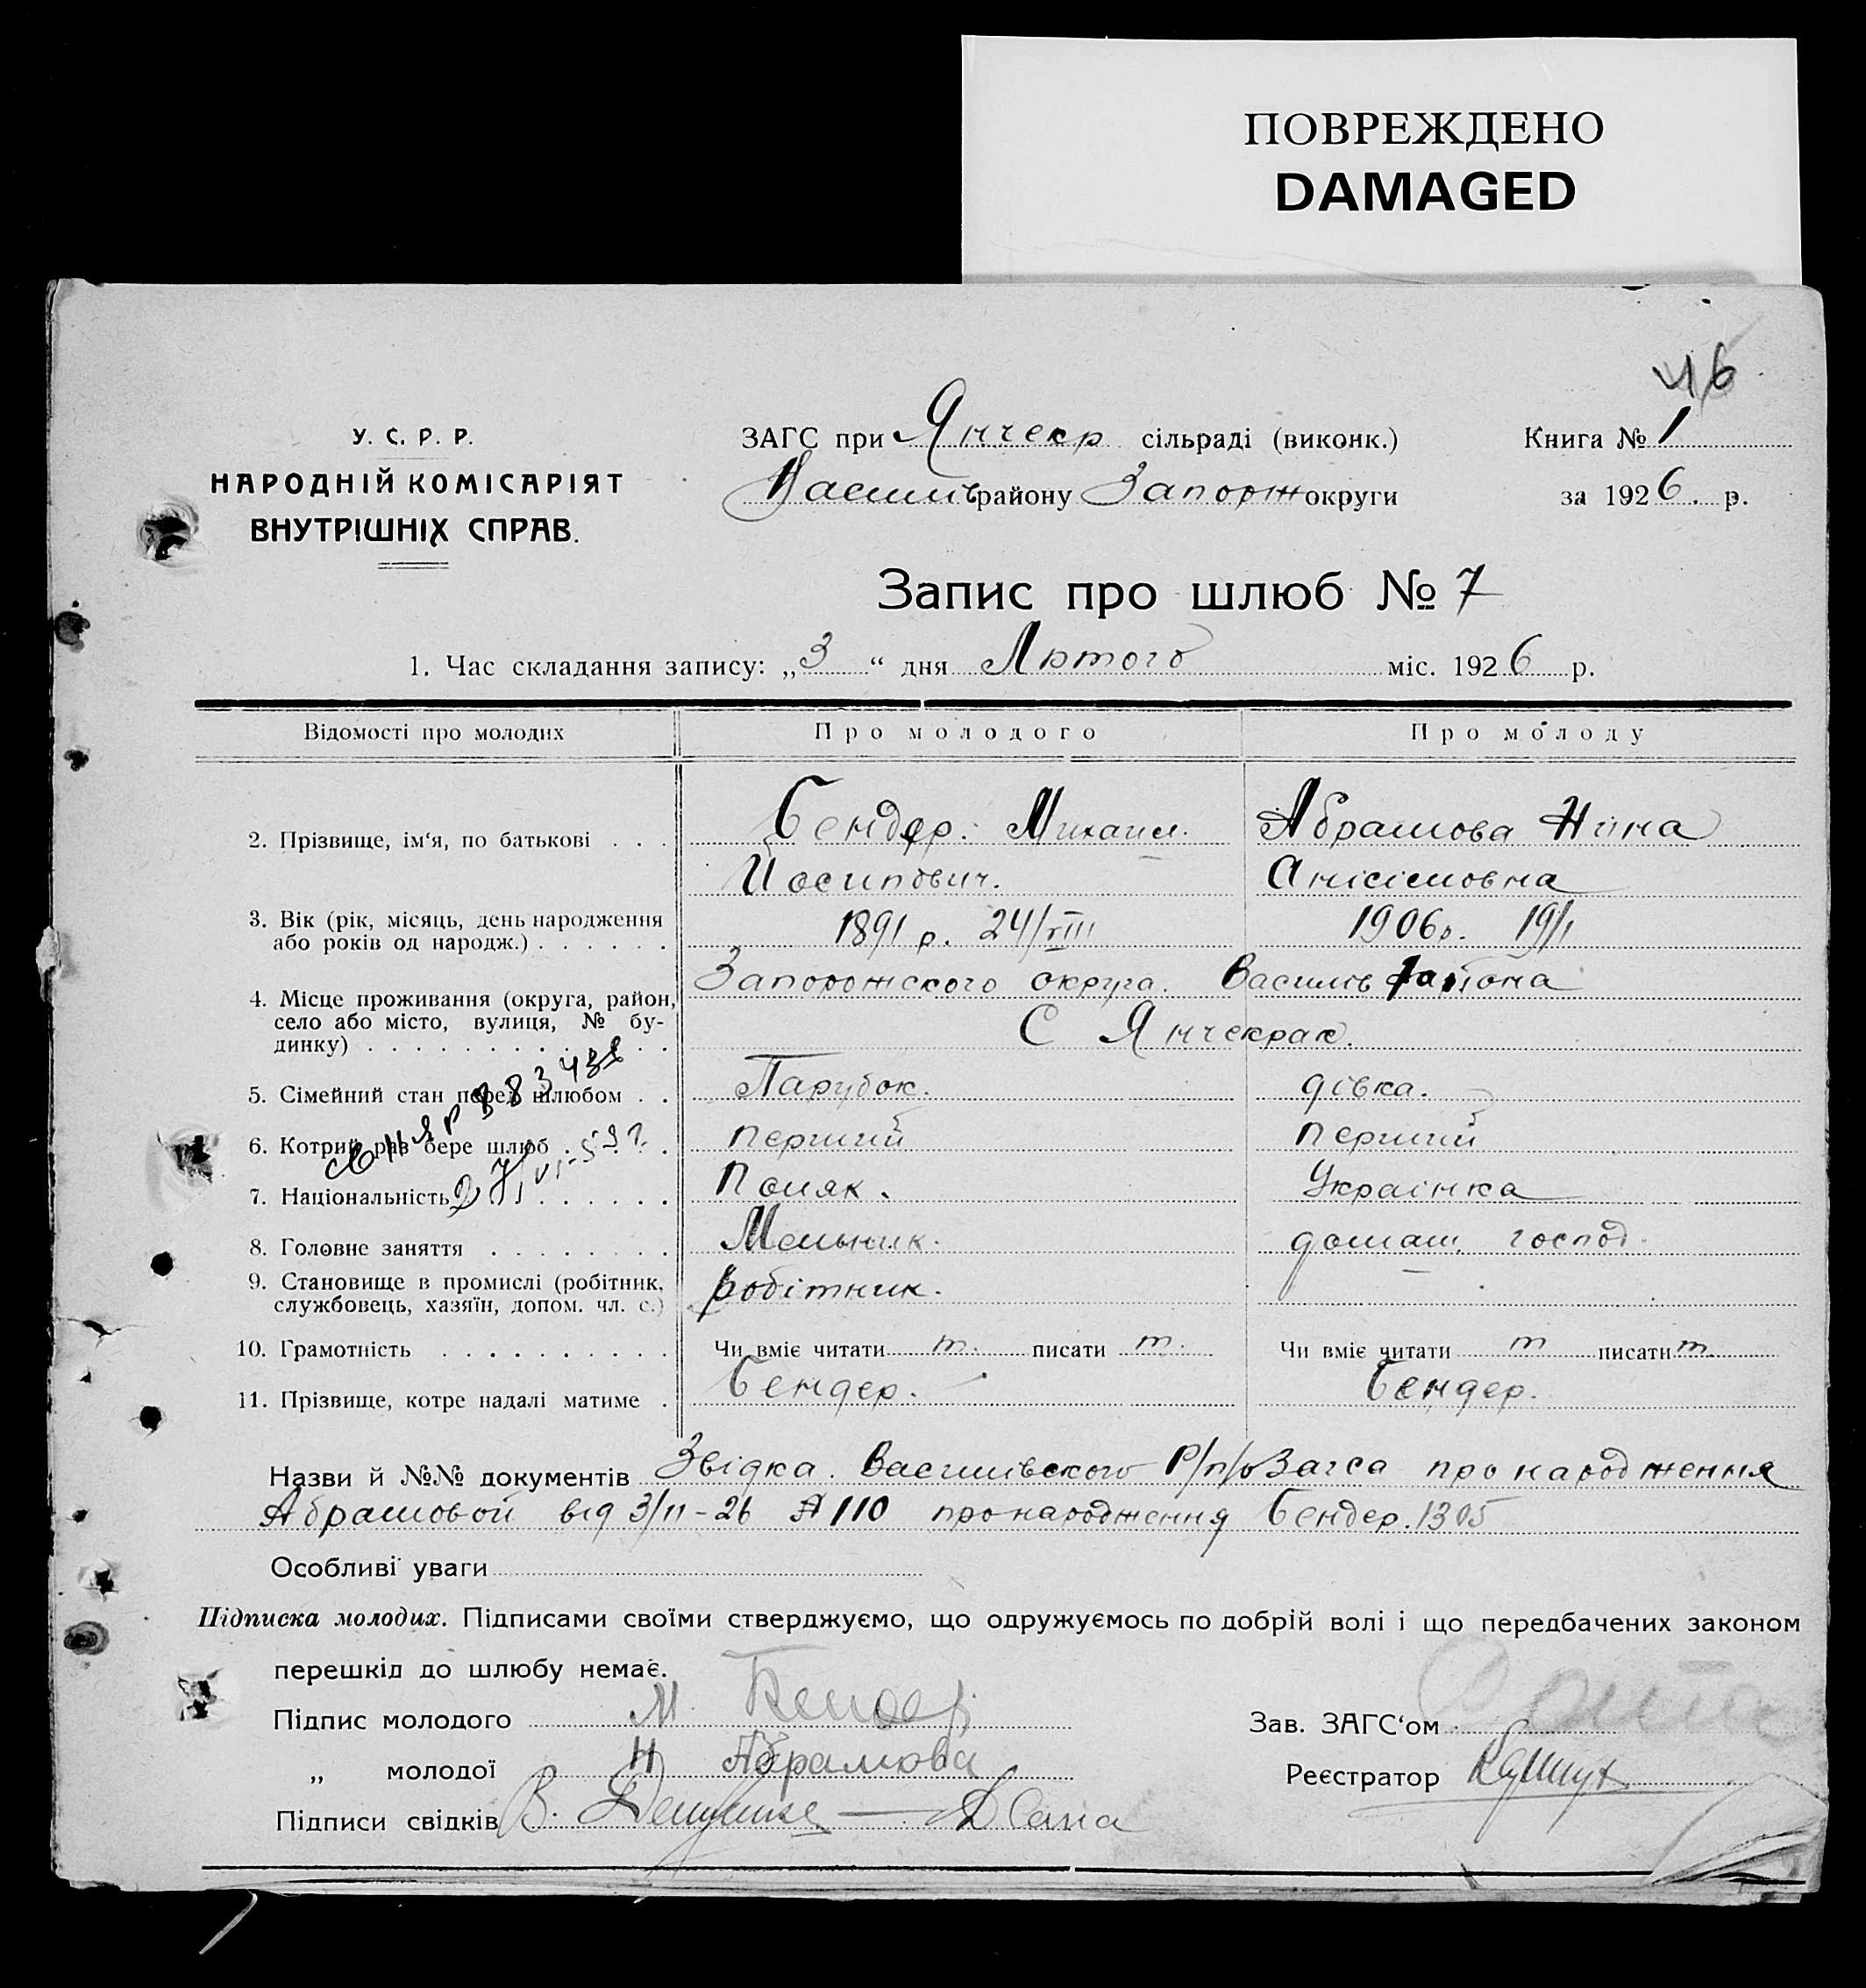 ПОВРЕЖДЕНО
DAMAGED
46
У. С. Р. Р.
НАРОДНІЙ КОМІСАРІЯТ
ВНУТРІШНІХ СПРАВ.
ЗАГС при Янчекр сільраді (виконк.)
Книга № 1
Василів району Запорож округи
за 1926. р.
Запис про шлюб № 7
1. Час складання запису: „3“ дня Лютого міс. 1926 р.
Відомості про молодих
Про молодого
Про молоду
2. Прізвище, ім‘я, по батькові . . .
Бендер. Михаил.
Йосипович.
Абрамова Ніна
Анісімовна
3. Вік (рік, місяць, день народження
або років од народж.) . . . . . .
1891 р. 24/VIII
1906р. 19/I
4. Місце проживання (округа, район,
село або місто, вулиця, № бу-
динку) . . . . . . . . . . . . .
Запорожского округа. Василів района
С Янчекрак.
5. Сімейний стан перед шлюбом . .
Парубок.
дівка.
6. Котрий раз бере шлюб . . . . .
перший
перший
7. Національність . . . . . . .
Поляк.
Українка
8. Головне заняття . . . . . . . .
Мельник.
домаш. господ.
9. Становище в промислі (робітник,
службовець, хазяїн, допом. чл. с.)
робітник.
10. Грамотність . . . . . . . . . .
Чи вміє читати т. писати т.
Чи вміє читати т писати т.
11. Прізвище, котре надалі матиме .
Бендер.
Бендер.
Назви й №№ документів Звідка. Василівского Р/п/о Загса про народження
Абрамовой від 3/II-26 № 110 про народження Бендер. 1305
Особливі уваги
Підписка молодих. Підписами своїми стверджуємо, що одружуємось по добрій волі і що передбачених законом
перешкід до шлюбу немає.
Підпис молодого М. Бендер
Зав. ЗАГС‘ом
„ молодої Н Абрамова
Реєстратор
Підписи свідків В.